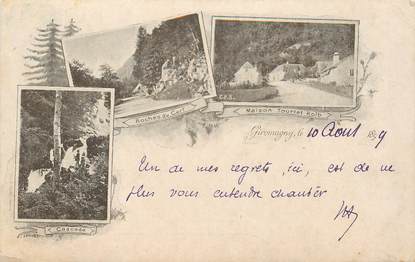 Roches du Cerf
Maison Tourtet Kolb
Giromagny, le 10 Août 189
Un de mes regrets, ici, est de ne
plus vous entendre chanter
Cascade